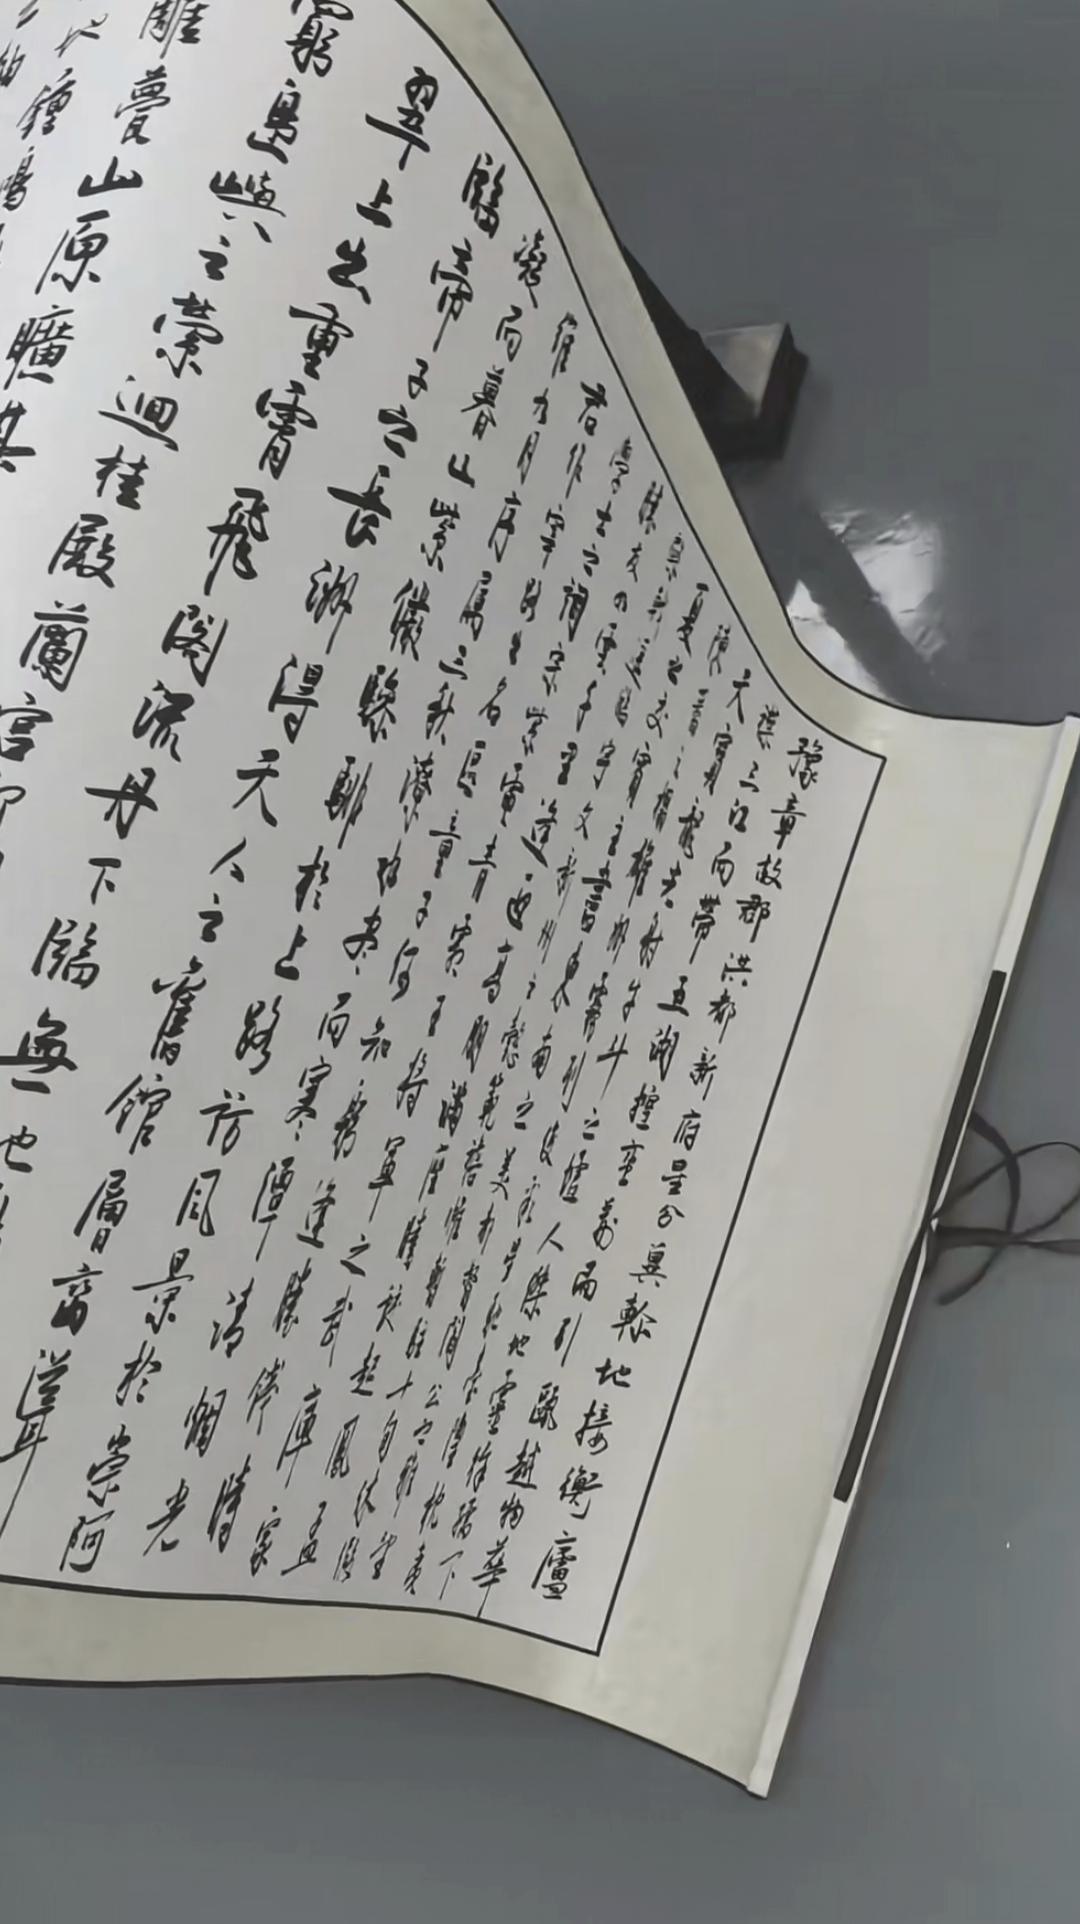 豫章故郡洪都新府星分翼軫地接衡廬
襟三江而帶五湖控蠻荊而引甌越物華
天寶龍光射牛斗之墟人傑地靈徐孺下
陳蕃之榻雄州霧列俊采星馳臺隍枕夷
夏之交賓主盡東南之美都督閻公之雅望
棨戟遙臨宇文新州之懿範襜帷暫駐十旬休暇
勝友如雲千里逢迎高朋滿座騰蛟起鳳孟
學士之詞宗紫電青霜王將軍之武庫家
君作宰路出名區童子何知躬逢勝餞時
維九月序屬三秋潦水盡而寒潭清煙光
凝而暮山紫儼驂騑於上路訪風景於崇阿
臨帝子之長洲得天人之舊館層巒聳
翠上出重霄飛閣流丹下臨無地
窮島嶼之縈迴桂殿蘭宮即
雕甍山原曠其
地鐘鳴